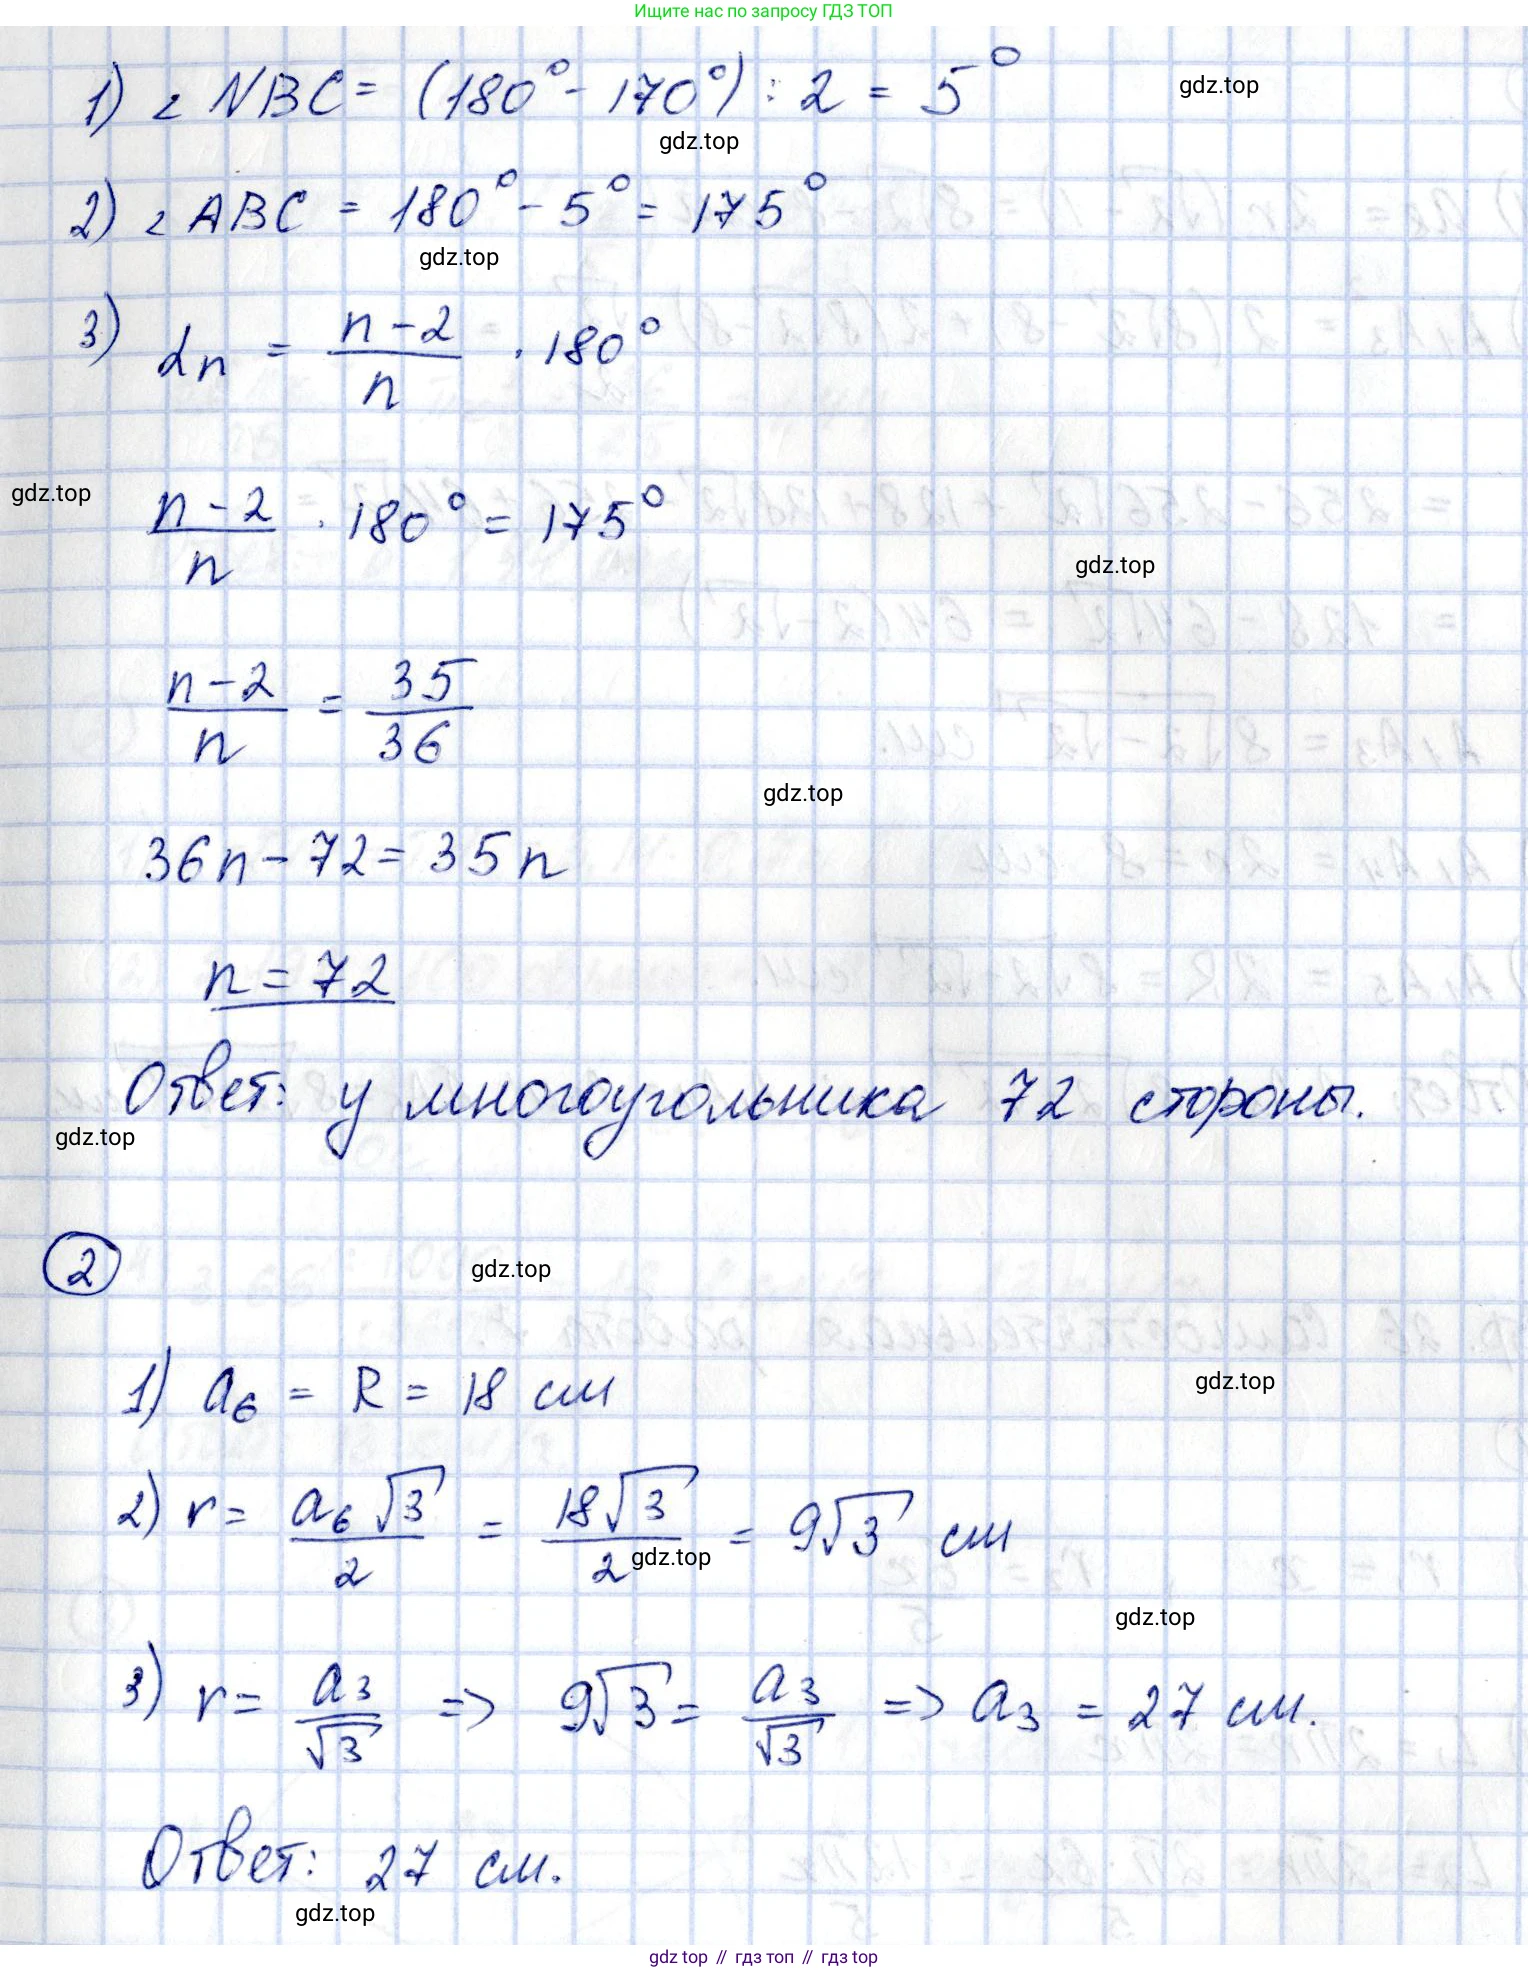 Ищите нас по запросу ГДЗ ТОП
1) ∠NBC = (180° - 170°) : 2 = 5°
gdz.top
gdz.top
2) ∠ABC = 180° - 5° = 175°
gdz.top
3) αn = n-2/n · 180°
gdz.top
n-2/n · 180° = 175°
gdz.top
n-2/n = 35/36
gdz.top
36n - 72 = 35n
n = 72
Ответ: у многоугольника 72 стороны.
gdz.top
2
gdz.top
1) a₆ = R = 18 см
gdz.top
2) r = a₆√3/2 = 18√3/2 = 9√3 см
gdz.top
gdz.top
3) r = a₃/√3 => 9√3 = a₃/√3 => a₃ = 27 см.
Ответ: 27 см.
gdz.top
gdz top // гдз топ // гдз top